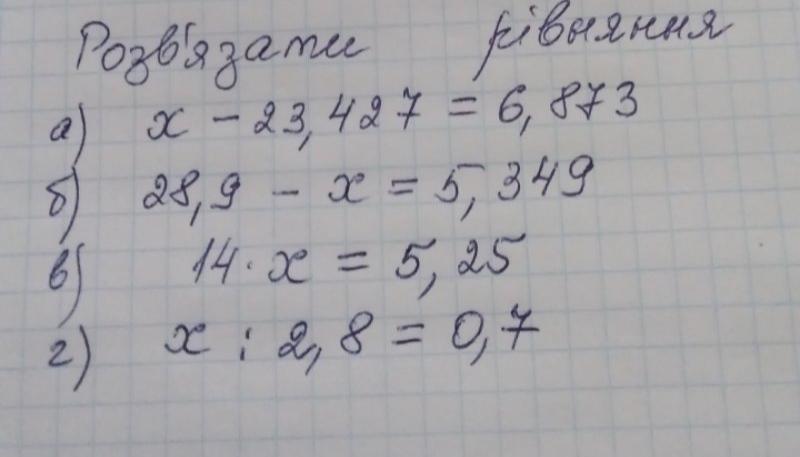 Розв'язати рівняння
а) x - 23,427 = 6,873
б) 28,9 - x = 5,349
в) 14 · x = 5,25
г) x : 2,8 = 0,7